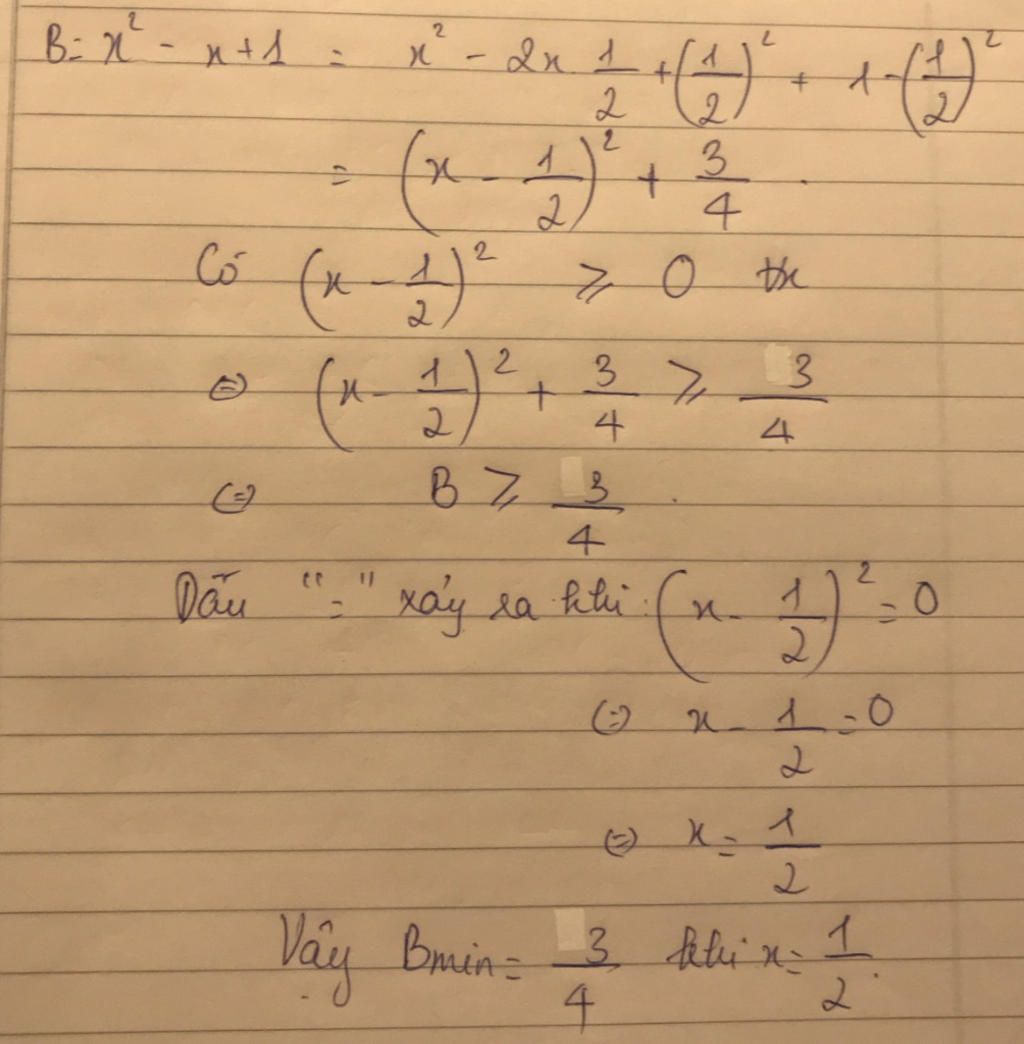 B = x² - x + 1 = x² - 2x . 1/2 + (1/2)² + 1 - (1/2)²
= (x - 1/2)² + 3/4 .
Có (x - 1/2)² ⩾ 0 ∀x
⇔ (x - 1/2)² + 3/4 ⩾ 3/4
⇔ B ⩾ 3/4 .
Dấu "=" xảy ra khi: (x - 1/2)² = 0
⇔ x - 1/2 = 0
⇔ x = 1/2
Vậy Bmin = 3/4 khi x = 1/2.